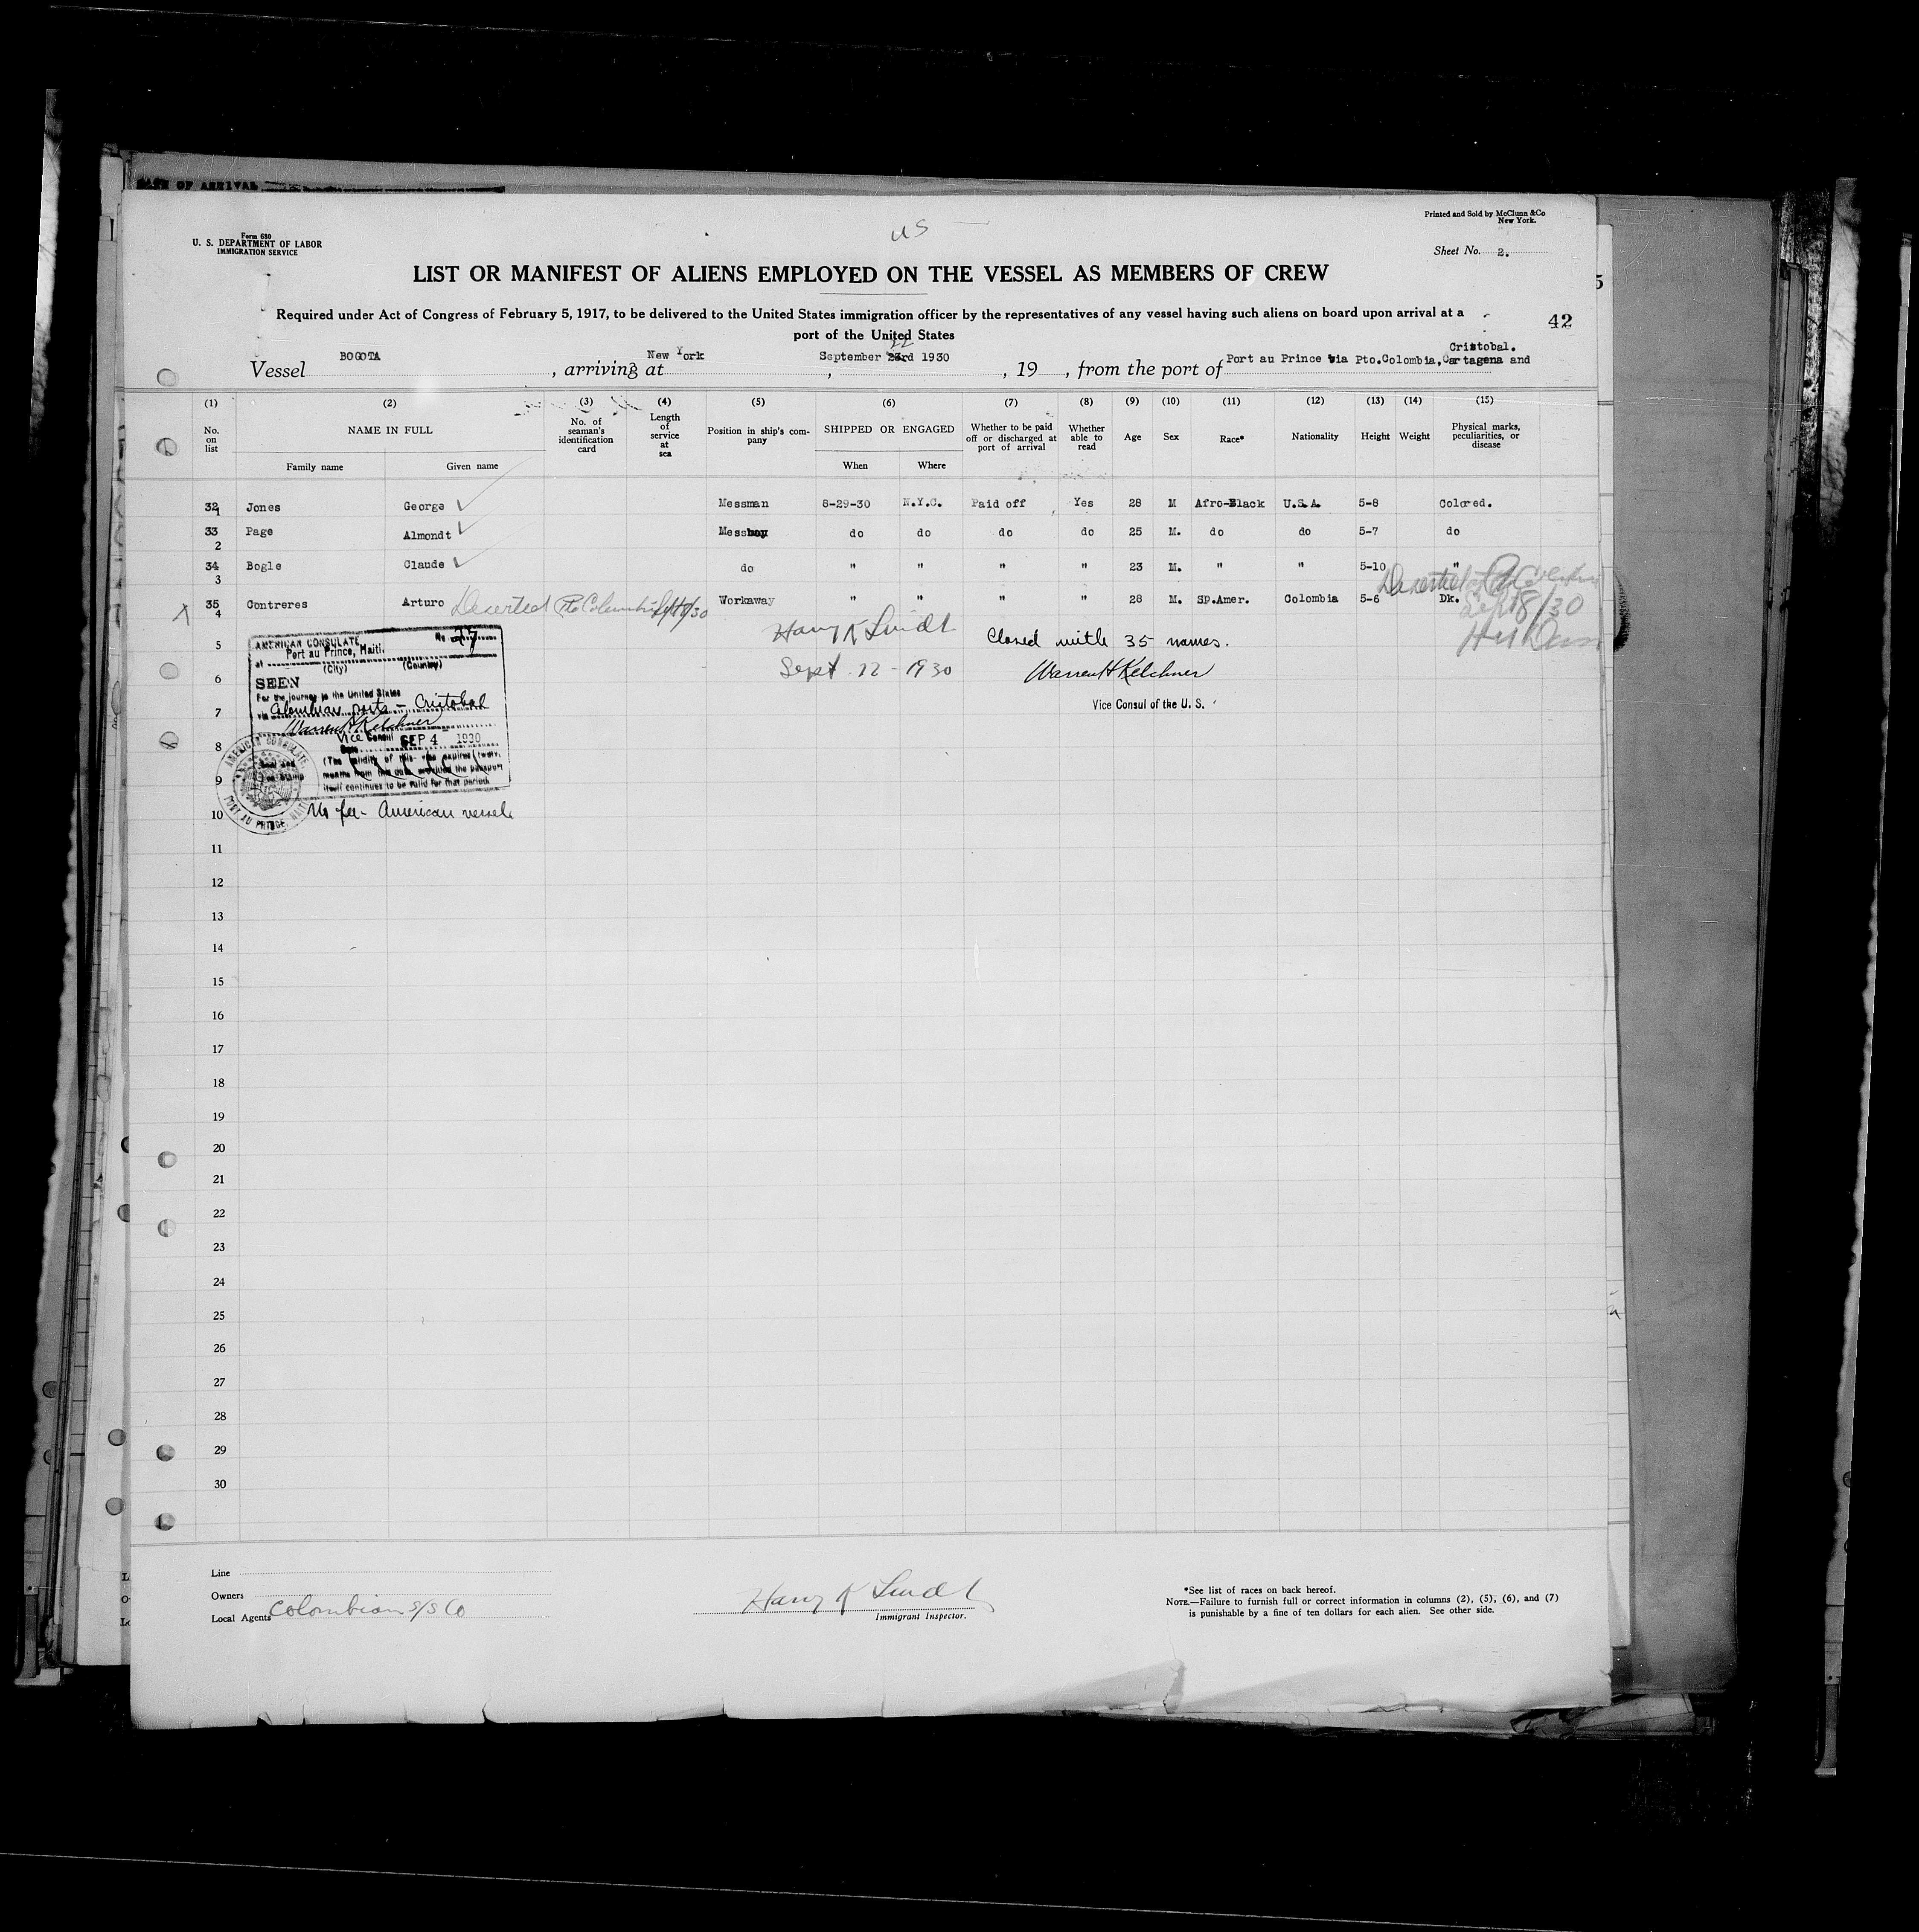 DATE OF ARRIVAL
Form 680
U. S. DEPARTMENT OF LABOR
IMMIGRATION SERVICE
US
Printed and Sold by McClunn &Co
New York.
Sheet No. 2.
LIST OR MANIFEST OF ALIENS EMPLOYED ON THE VESSEL AS MEMBERS OF CREW
Required under Act of Congress of February 5, 1917, to be delivered to the United States immigration officer by the representatives of any vessel having such aliens on board upon arrival at a
port of the United States
42
Vessel BOGOTA, arriving at New York, September 23rd 1930, 19, from the port of Port au Prince via Pto.Colombia, Cartagena and Cristobal.
22
(1) (2) (3) (4) (5) (6) (7) (8) (9) (10) (11) (12) (13) (14) (15)
No. on list
NAME IN FULL
Family name
Given name
No. of seaman's identification card
Length of service at sea
Position in ship's company
SHIPPED OR ENGAGED
When
Where
Whether to be paid off or discharged at port of arrival
Whether able to read
Age
Sex
Race*
Nationality
Height
Weight
Physical marks, peculiarities, or disease
32 1 Jones George Messman 8-29-30 N.Y.C. Paid off Yes 28 M Afro-Black U.S.A. 5-8 Colored.
33 2 Page Almondt Messboy do do do do 25 M. do do 5-7 do
34 3 Bogle Claude do " " " " 23 M. " " 5-10 "
35 4 Contreres Arturo Deserted Pto Colombia Workaway " " " " 28 M. SP.Amer. Colombia 5-6 Dk.
Deserted at
Sept 8/30
5
Harry K Lindt
Closed with 35 names.
6
Sept. 22 - 1930
Warren H Kelchner
7
Vice Consul of the U. S.
AMERICAN CONSULATE
No 27
at Port au Prince, Haiti.
(City) (Country)
SEEN
For the journey to the United States
via Colombian ports - Cristobal
Warren H Kelchner
Vice Consul
Date SEP 4 1930
(The validity of this visa expires twelve
months from this date provided the passport
itself continues to be valid for that period.
AMERICAN CONSULATE
PORT AU PRINCE, HAITI
No fee - American vessel
8
9
10
11
12
13
14
15
16
17
18
19
20
21
22
23
24
25
26
27
28
29
30
Line
Owners
Local Agents Colombian S/S Co
Harry K Lindt
Immigrant Inspector.
*See list of races on back hereof.
NOTE.—Failure to furnish full or correct information in columns (2), (5), (6), and (7)
is punishable by a fine of ten dollars for each alien. See other side.